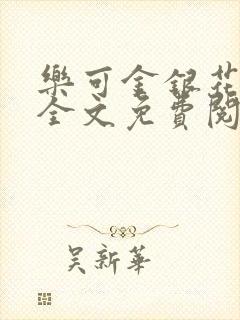 樂可金銀花
全文免費閱
吳新華